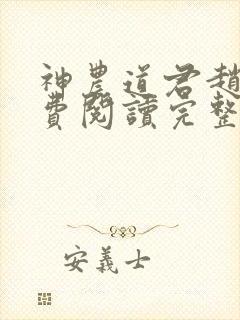 神農道君趙
費閱讀完整
安義士